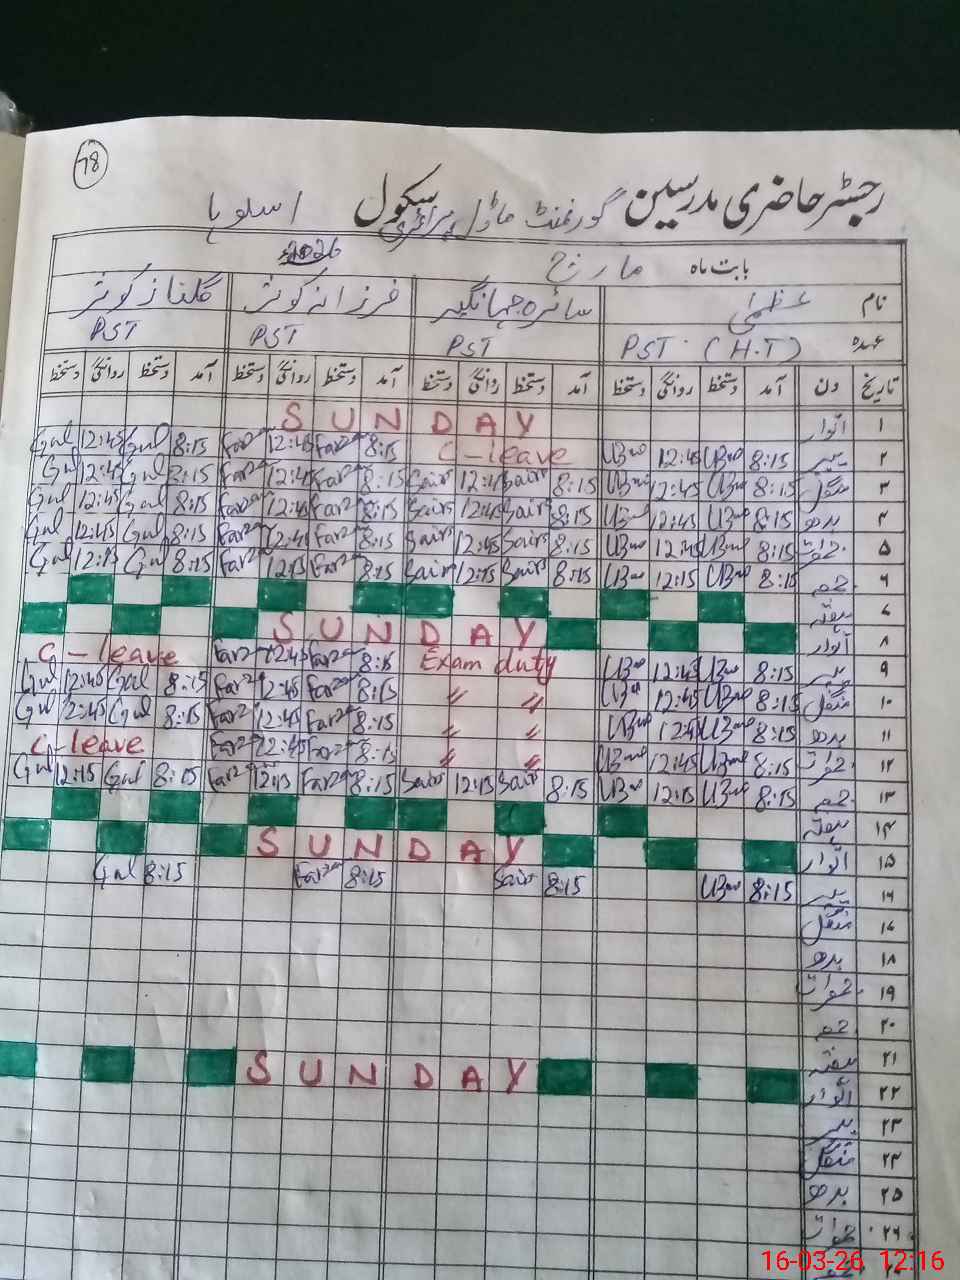 78
رجسٹر حاضری مدرسین گورنمنٹ ماڈل پرائمری سکول اسلوہا
بابت ماہ مارچ 2026
نام عظمیٰ سائرہ جہانگیر فرزانہ کوثر گلناز کوثر
عہدہ PST (H.T) PST PST PST
تاریخ دن آمد دستخط روانگی دستخط آمد دستخط روانگی دستخط آمد دستخط روانگی دستخط آمد دستخط روانگی دستخط
۱ اتوار SUNDAY
۲ پیر 8:15 12:45 C-leave 8:15 Farz 12:45 Farz 8:15 Gul 12:45 Gul
۳ منگل 8:15 12:45 8:15 Sair 12:45 Sair 8:15 Farz 12:45 Farz 8:15 Gul 12:45 Gul
۴ بدھ 8:15 12:45 8:15 Sair 12:45 Sair 8:15 Farz 12:45 Farz 8:15 Gul 12:45 Gul
۵ جمعرات 8:15 12:45 8:15 Sair 12:45 Sair 8:15 Farz 12:45 Farz 8:15 Gul 12:45 Gul
۶ جمعہ 8:15 12:15 8:15 Sair 12:15 Sair 8:15 Farz 12:15 Farz 8:15 Gul 12:15 Gul
۷ ہفتہ
۸ اتوار SUNDAY
۹ پیر 8:15 12:45 Exam duty 8:15 Farz 12:45 Farz C-leave
۱۰ منگل 8:15 12:45 〃 〃 8:15 Farz 12:45 Farz 8:15 Gul 12:45 Gul
۱۱ بدھ 8:15 12:45 〃 〃 8:15 Farz 12:45 Farz 8:15 Gul 12:45 Gul
۱۲ جمعرات 8:15 12:45 〃 〃 8:15 Farz 12:45 Farz C-leave
۱۳ جمعہ 8:15 12:15 8:15 Sair 12:15 Sair 8:15 Farz 12:15 Farz 8:15 Gul 12:15 Gul
۱۴ ہفتہ
۱۵ اتوار SUNDAY
۱۶ پیر 8:15 8:15 Sair 8:15 Farz 8:15 Gul
۱۷ منگل
۱۸ بدھ
۱۹ جمعرات
۲۰ جمعہ
۲۱ ہفتہ
۲۲ اتوار SUNDAY
۲۳ پیر
۲۴ منگل
۲۵ بدھ
۲۶ جمعرات
16-03-26 12:16